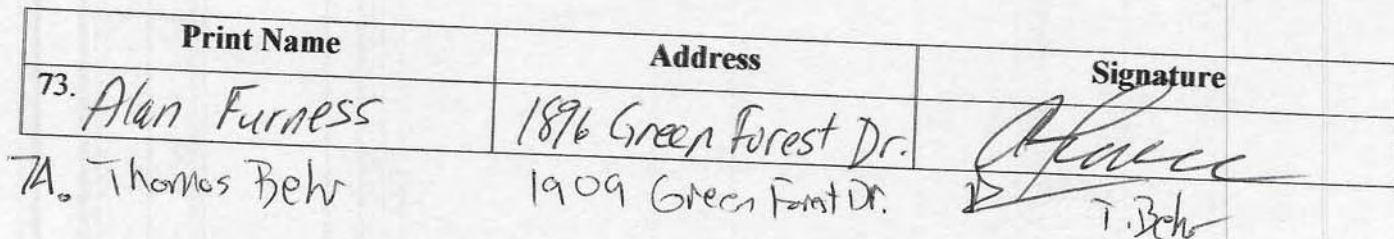 Print Name Address Signature
73. Alan Furness 1896 Green Forest Dr.
74. Thomas Behr 1909 Green Forest Dr. T. Behr